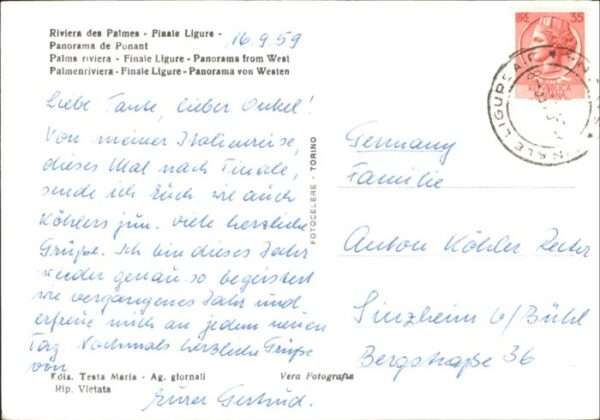 Riviera des Palmes - Finale Ligure -
Panorama de Ponant
Palms riviera - Finale Ligure - Panorama from West
Palmenriviera - Finale Ligure - Panorama von Westen
16.9.59
Liebe Tante, lieber Onkel!
Von meiner Italienreise,
dieses Mal nach Finale,
sende ich Euch wie auch
Köhlers jun. viele herzliche
Grüße. Ich bin dieses Jahr
wieder genau so begeistert
wie vergangenes Jahr und
erfreue mich an jedem neuen
Tag. Nochmals herzliche Grüße
von
Eurer Gertrud.
Ediz. Testa Maria - Ag. giornali
Rip. Vietata
Vera Fotografia
FOTOCELERE - TORINO
LIRE 35
FINALE LIGURE
Germany
Familie
Anton Köhler
Sinzheim b/Bühl
Bergstraße 36